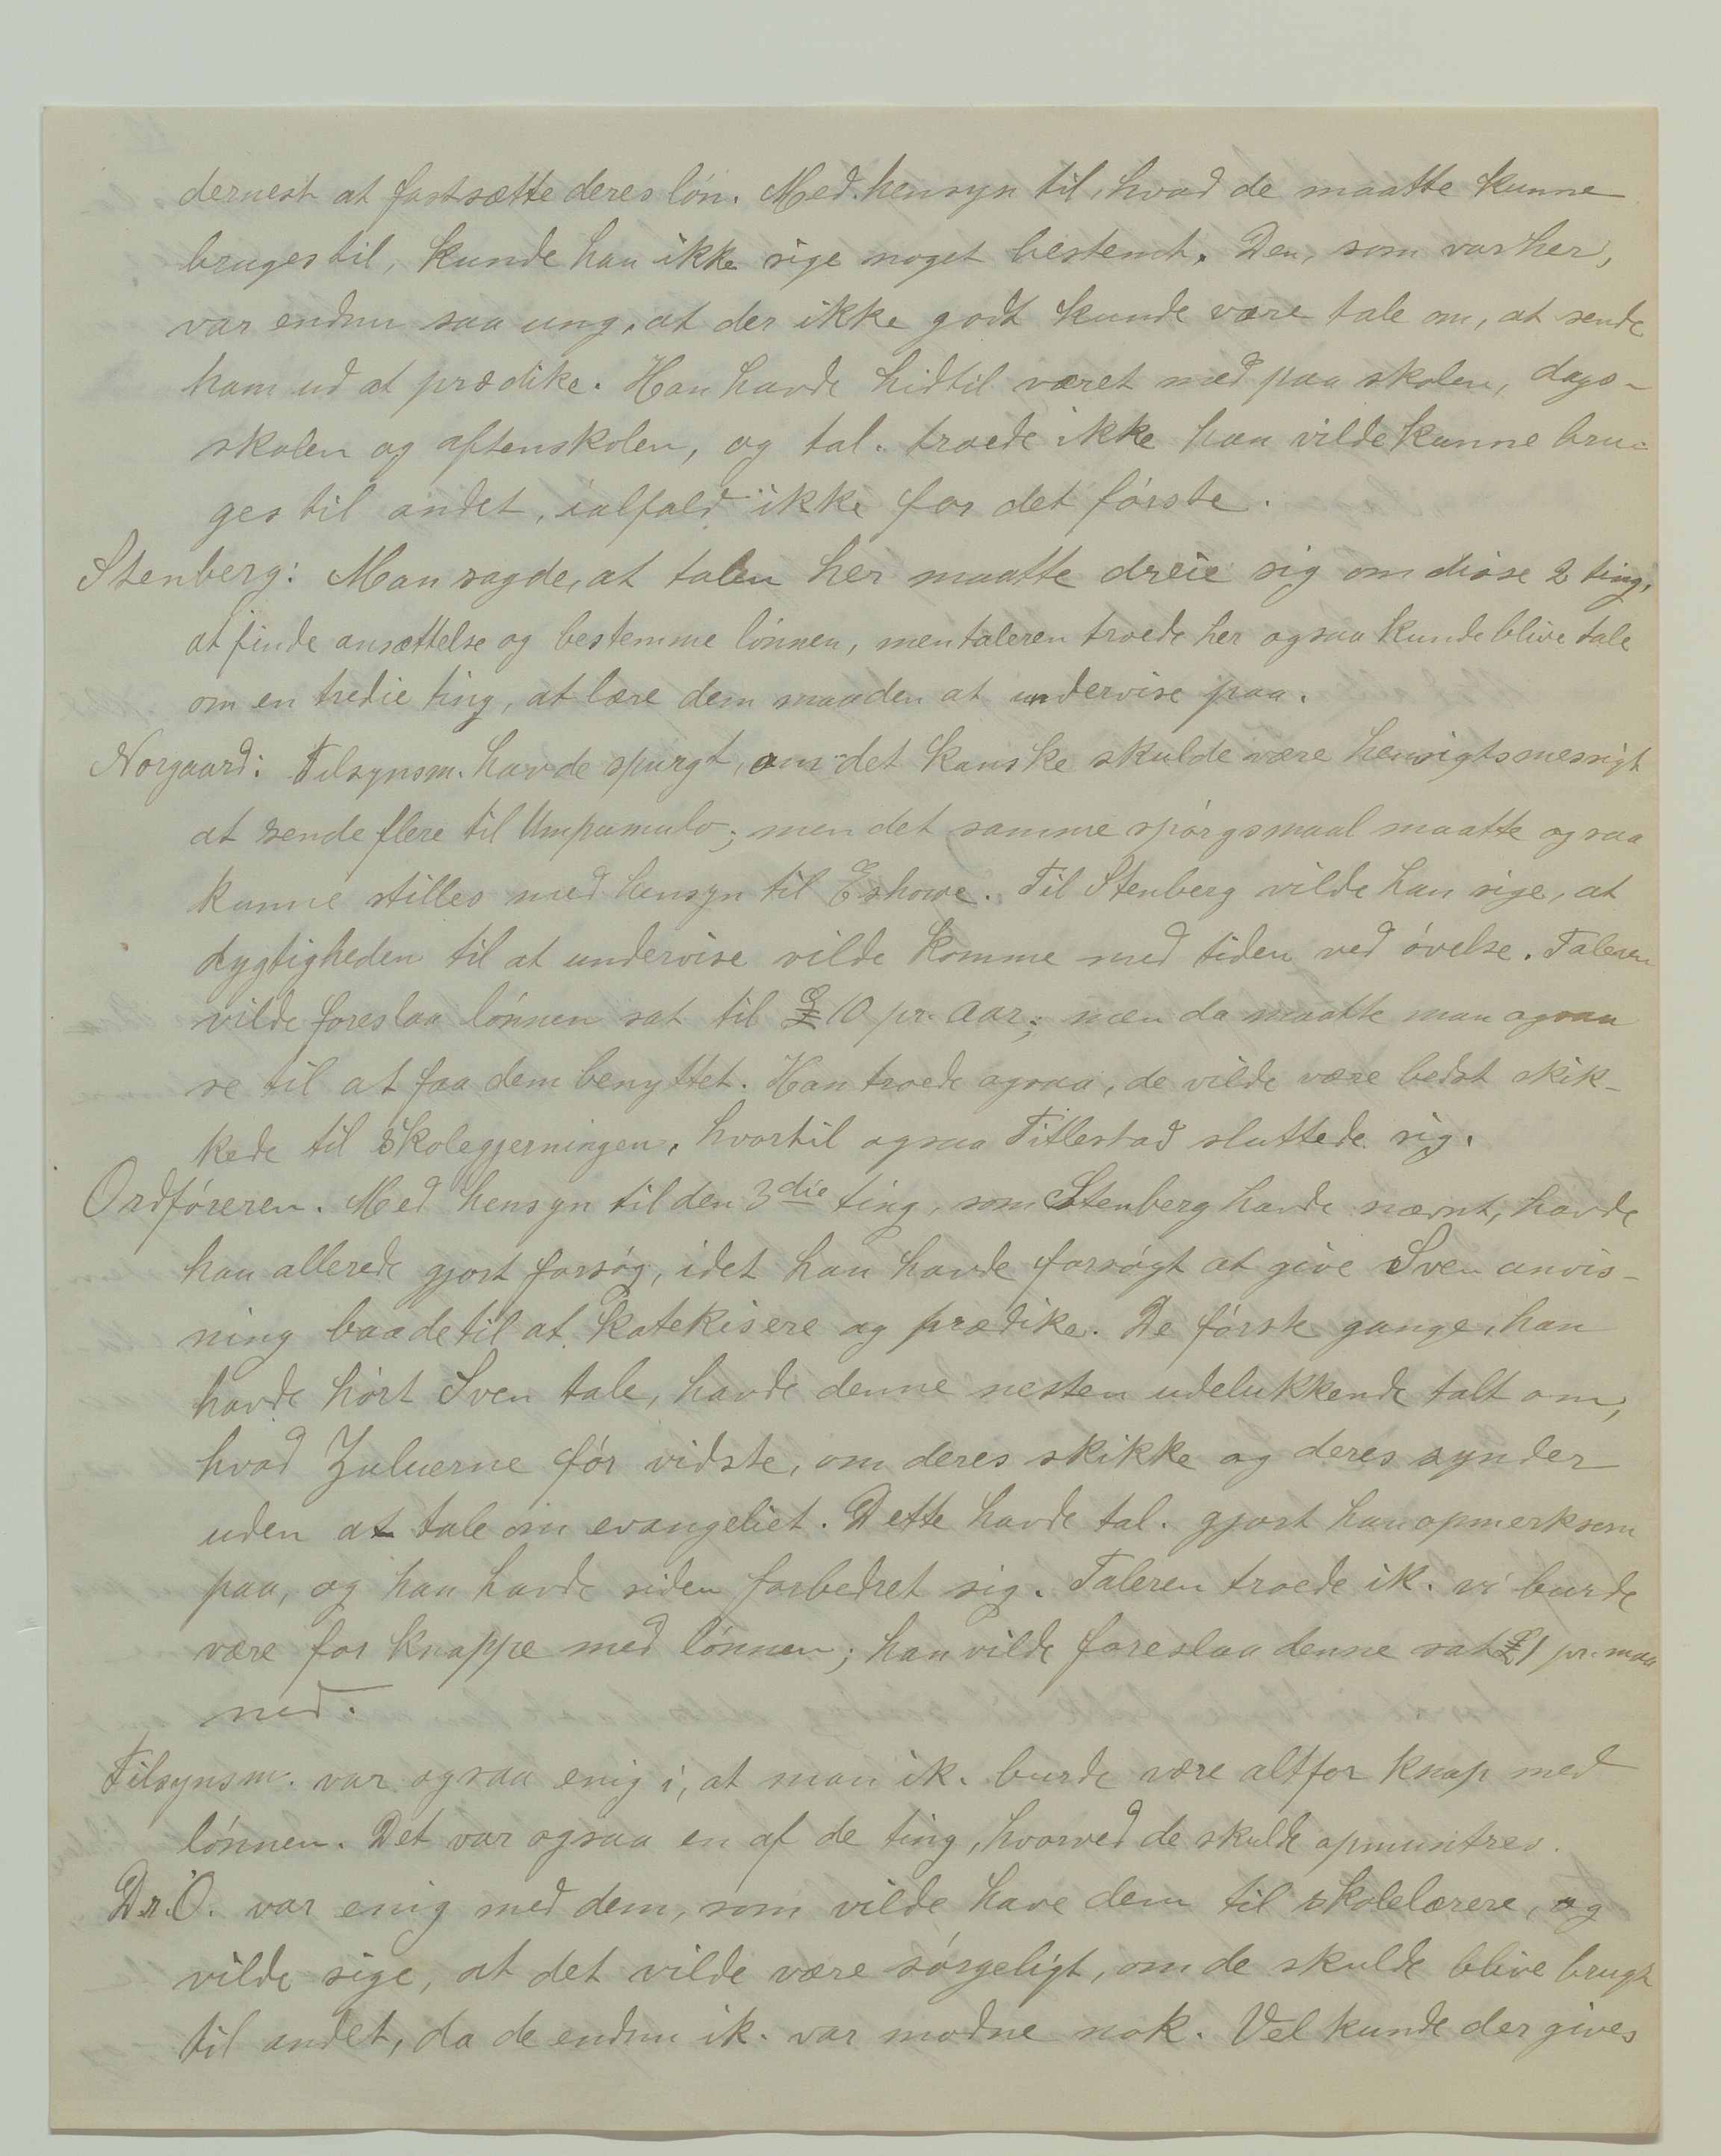 dernest at fastsætte deres løn. Med hensyn til, hvad de maatte kunne
bruges til, kunde han ikke sige noget bestemt. Den, som var her,
var endnu saa ung, at der ikke godt kunde være tale om, at sende
ham ud at prædike. Han havde hidtil været med paa skolen, dags-
skolen og aftenskolen, og tal. troede ikke han vilde kunne bru-
ges til andet, ialfald ikke for det første.
Stenberg: Man sagde, at talen her maatte dreie sig om disse 2 ting,
at finde ansættelse og bestemme lønnen, men taleren troede her ogsaa kunde blive tale
om en tredie ting, at lære dem maaden at undervise paa.
Norgaard: Tilsynsm. havde spurgt, om det kanske skulde være hensigtsmessigt
at sende flere til Umpumulo; men det samme spørgsmaal maatte ogsaa
kunne stilles med hensyn til Eshowe. Til Stenberg vilde han sige, at
dygtigheden til at undervise vilde komme med tiden ved øvelse. Taleren
vilde foreslaa lønnen sat til £ 10 pr. aar; men da maatte man ogsaa
se til at faa dem benyttet. Han troede ogsaa, de vilde være bedst skik-
kede til skolegjerningen, hvortil ogsaa Titlestad sluttede sig.
Ordføreren. Med hensyn til den 3die ting, som Stenberg havde nævnt, havde
han allerede gjort forsøg, idet han havde forsøgt at give Sven anvis-
ning baade til at katekisere og prædike. De første gange, han
havde hørt Sven tale, havde denne nesten udelukkende talt om,
hvad Zuluerne før vidste, om deres skikke og deres synder
uden at tale om evangeliet. Dette havde tal. gjort han opmerksom
paa, og han havde siden forbedret sig. Taleren troede ik. vi burde
være for knappe med lønnen; han vilde foreslaa denne sat £1 pr. maa
ned.
Tilsynsm. var ogsaa enig i, at man ik. burde være altfor knap med
lønnen. Det var ogsaa en af de ting, hvorved de skulde opmuntres.
Dr. O. var enig med dem, som vilde have dem til skolelærere, og
vilde sige, at det vilde være sørgeligt, om de skulde blive brugt
til andet, da de endnu ik. var modne nok. Vel kunde der gives